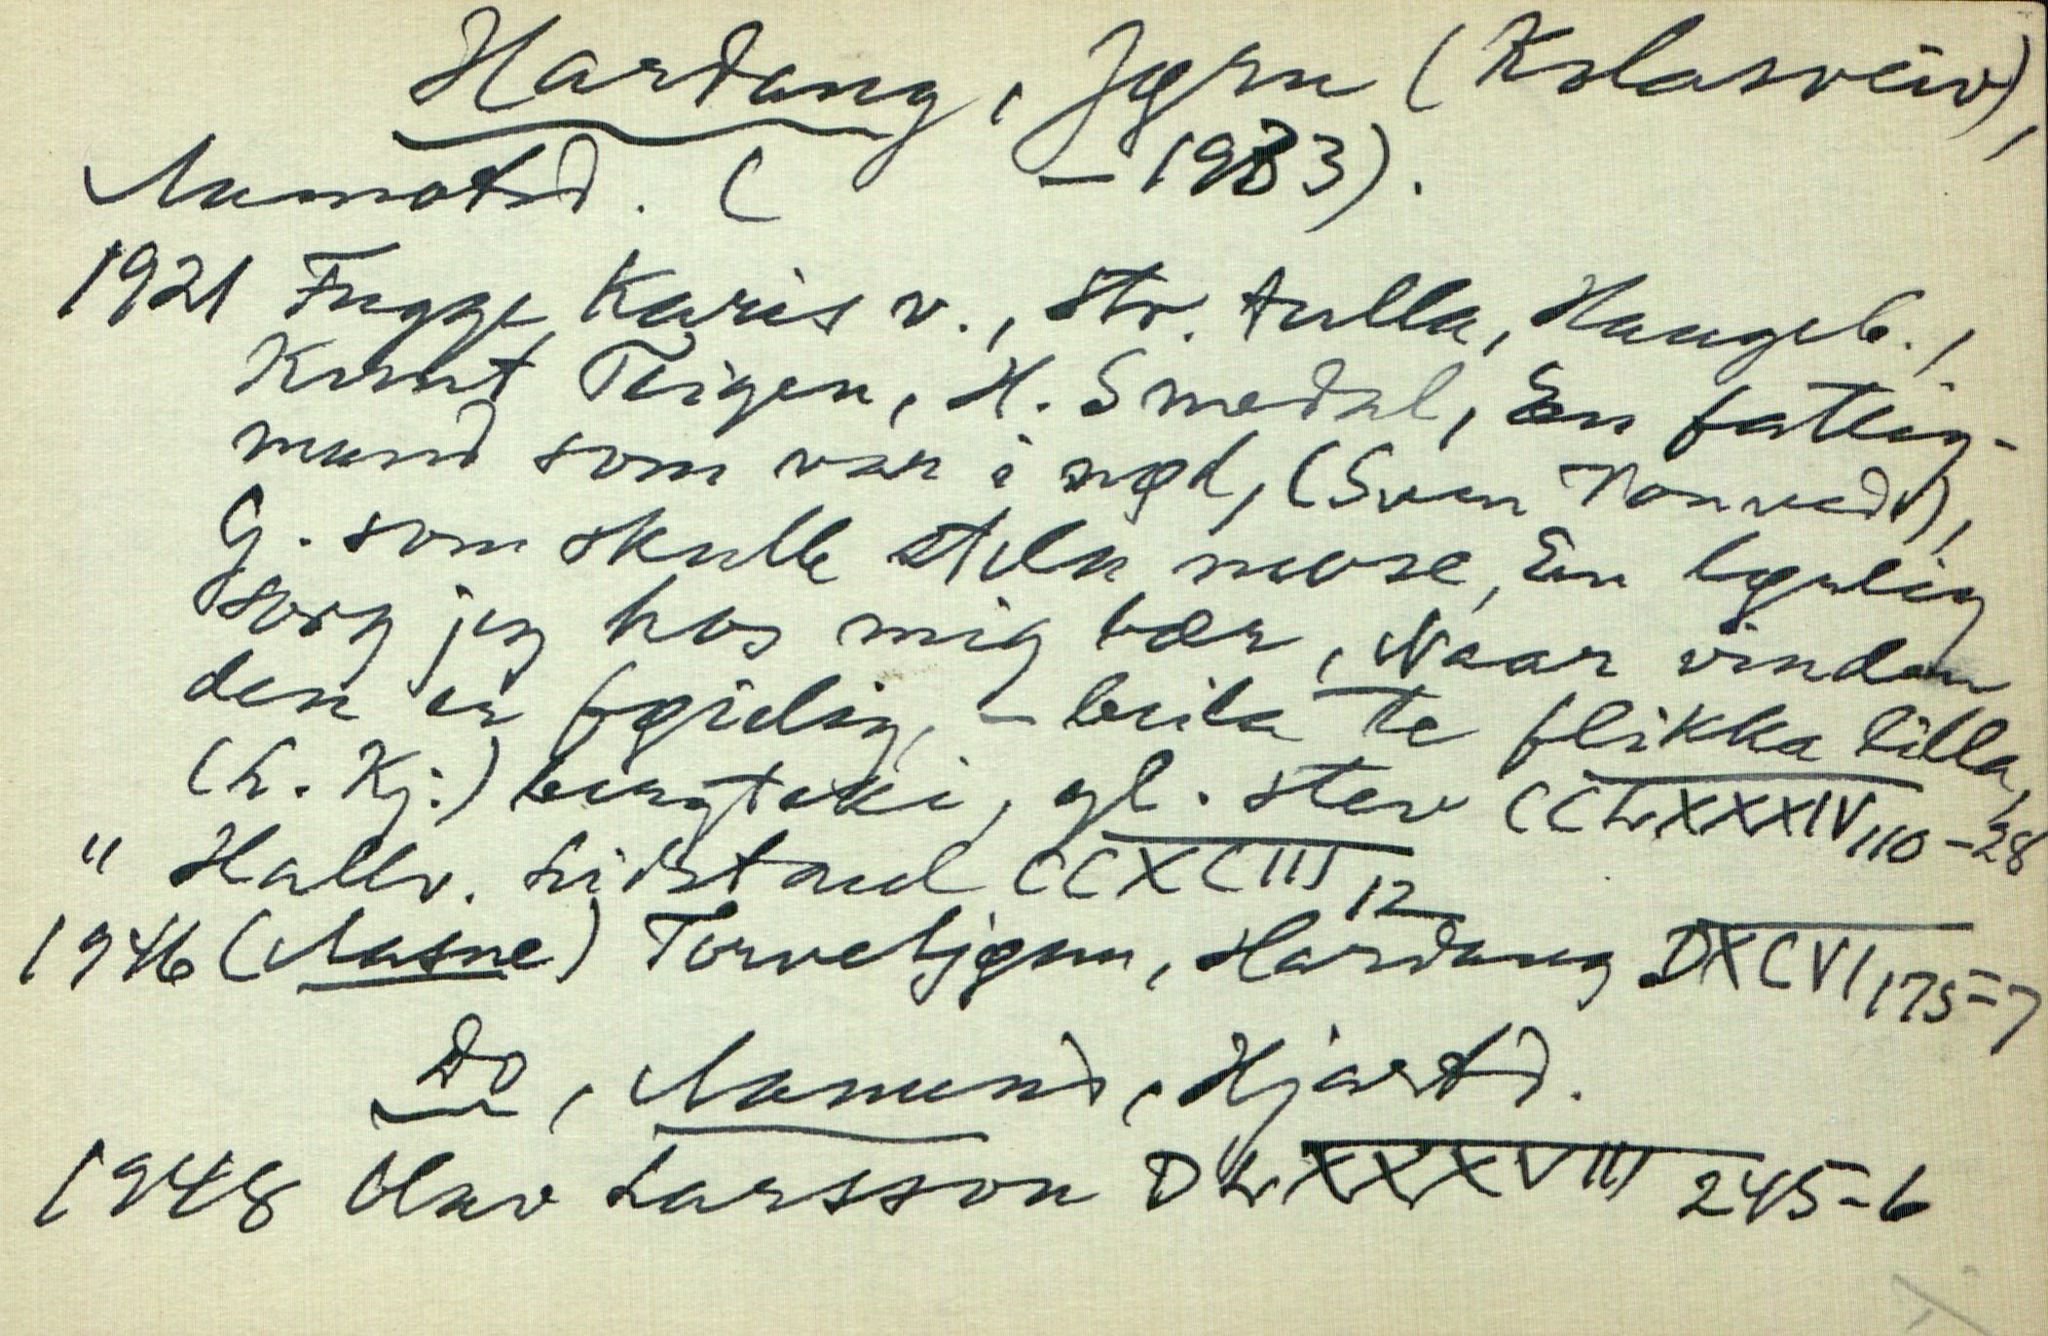 Hardang, Jørn (Kolasvein),
Aamotsd. ( – 1933).
1921 Fugge, Karis v., str. tulla, Haugeb.,
Knut Teigen, H. Smedal, En fattig-
mand som var i nød, (Sven Nonved),
G. som skulle stela mose, En lønlig
sorg jeg hos mig bær, Naar vinden
den er føielig, – beila te flikka lilla,
(L. Kj.) bergteki, gl. stev CCLXXXIV 110–28
" Hallv. Lidstaul CCXCIII 12
1946 (Aasne) Torveljønn, Hardang DXCVI 175–7
Do, Aamund, Hjartd.
1948 Olav Larsson DLXXXVIII 245–6